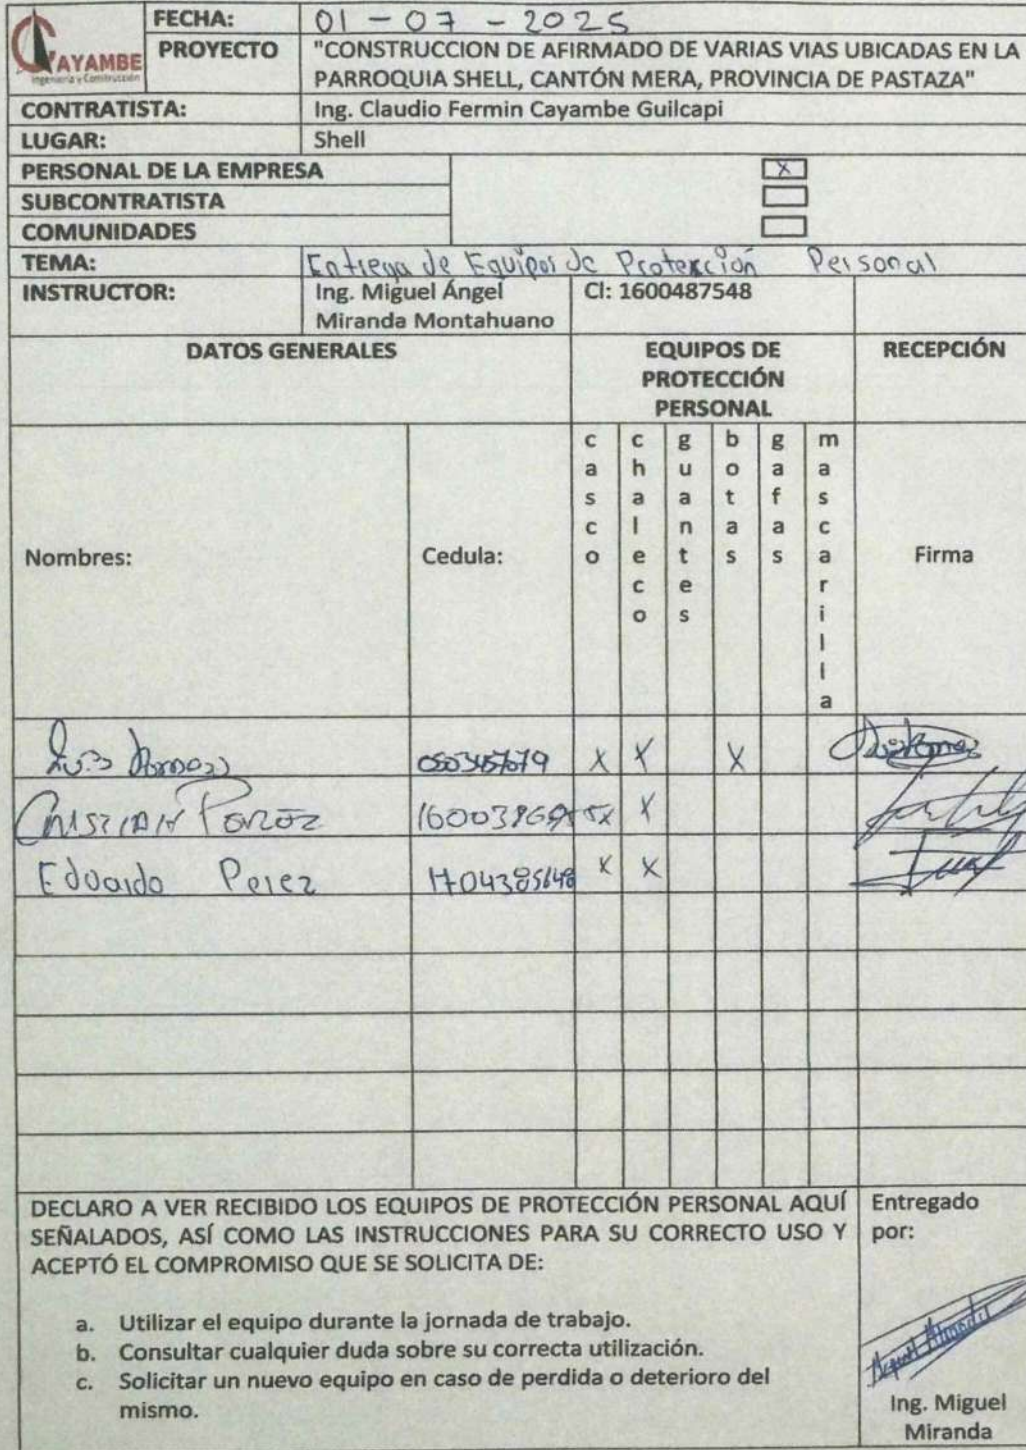 CAYAMBE
Ingeniería y Construcción
FECHA: 01 - 07 - 2025
PROYECTO "CONSTRUCCION DE AFIRMADO DE VARIAS VIAS UBICADAS EN LA
PARROQUIA SHELL, CANTÓN MERA, PROVINCIA DE PASTAZA"
CONTRATISTA: Ing. Claudio Fermin Cayambe Guilcapi
LUGAR: Shell
PERSONAL DE LA EMPRESA X
SUBCONTRATISTA
COMUNIDADES
TEMA: Entrega de Equipos de Protección Personal
INSTRUCTOR: Ing. Miguel Ángel CI: 1600487548
Miranda Montahuano
DATOS GENERALES EQUIPOS DE RECEPCIÓN
PROTECCIÓN
PERSONAL
Nombres: Cedula: casco chaleco guantes botas gafas mascarilla Firma
Luis X X X
Cristian Perez X X
Eduardo Perez 1704385648 X X
DECLARO A VER RECIBIDO LOS EQUIPOS DE PROTECCIÓN PERSONAL AQUÍ
SEÑALADOS, ASÍ COMO LAS INSTRUCCIONES PARA SU CORRECTO USO Y
ACEPTÓ EL COMPROMISO QUE SE SOLICITA DE:
a. Utilizar el equipo durante la jornada de trabajo.
b. Consultar cualquier duda sobre su correcta utilización.
c. Solicitar un nuevo equipo en caso de perdida o deterioro del
mismo.
Entregado
por:
Ing. Miguel
Miranda